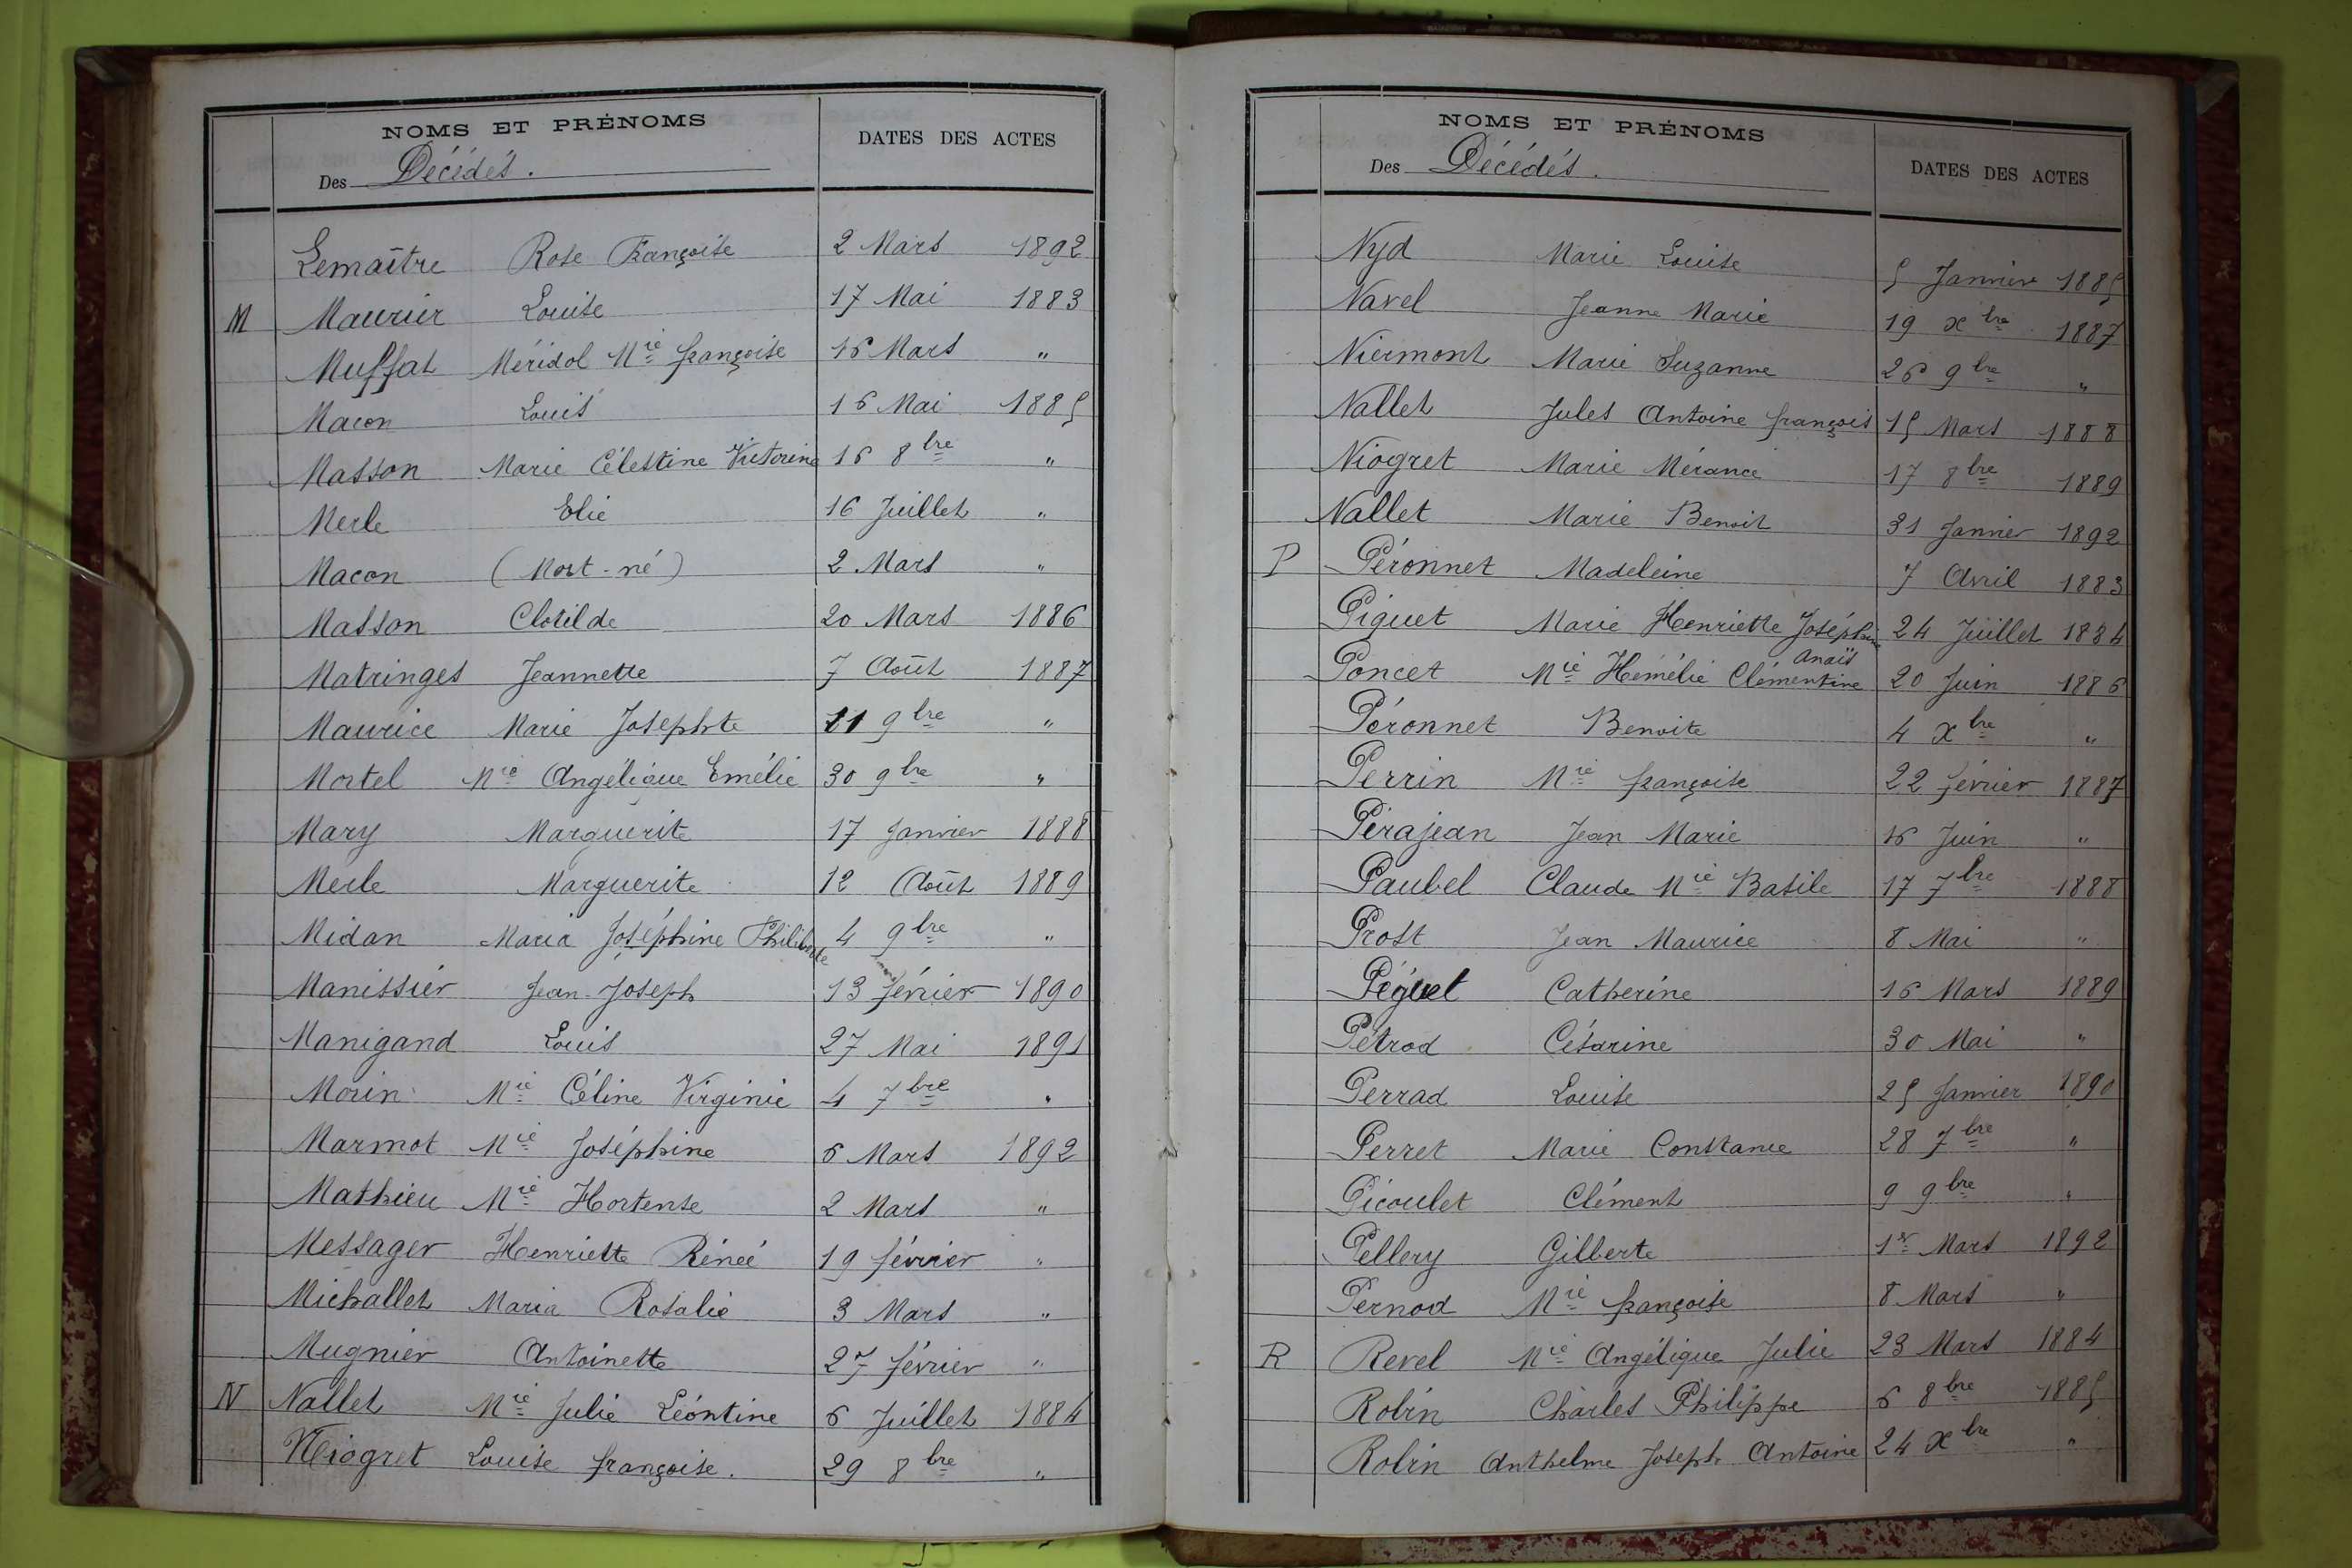 NOMS ET PRÉNOMS
DATES DES ACTES
Des Décédés.
Lemaître Rose Françoise 2 Mars 1892
M Maurier Louise 17 Mai 1883
Muffat Méridol Mie françoise 16 Mars "
Macon Louis 16 Mai 1885
Masson Marie Célestine Victorine 16 8bre "
Merle Elie 16 Juillet "
Macon (Mort-né) 2 Mars "
Masson Clotilde 20 Mars 1886
Matringes Jeannette 7 Août 1887
Maurice Marie Josephte 21 9bre "
Mortel Mie Angélique Emélie 30 9bre "
Mary Marguerite 17 Janvier 1888
Merle Marguerite 12 Août 1889
Midan Maria Joséphine Philiberte 4 9bre "
Manissier Jean-Joseph 13 février 1890
Manigand Louis 27 Mai 1891
Morin Mie Céline Virginie 4 7bre "
Marmot Mie Joséphine 6 Mars 1892
Mathieu Mie Hortense 2 Mars "
Messager Henriette Rénéé 19 février "
Michallet Maria Rosalie 3 Mars "
Mugnier Antoinette 27 février "
N Nallet Mie Julie Léontine 6 Juillet 1884
Niogret Louise françoise. 29 8bre "
NOMS ET PRÉNOMS
DATES DES ACTES
Des Décédés.
Nyd Marie Louise 5 Janvier 1885
Navel Jeanne Marie 19 xbre 1887
Niermont Marie Suzanne 26 9bre "
Nallet Jules Antoine françois 15 Mars 1888
Niogret Marie Mérance 17 8bre 1889
Nallet Marie Benoit 31 Janvier 1892
P Péronnet Madeleine 7 Avril 1883
Piguet Marie Henriette Joséphine 24 Juillet 1884
Anaïs
Poncet Mie Hémélie Clémentine 20 Juin 1886
Péronnet Benoite 4 Xbre "
Perrin Mie françoise 22 février 1887
Perajean Jean Marie 16 Juin "
Paubel Claude Mie Basile 17 7bre 1888
Prost Jean Maurice 8 Mai "
Péguet Catherine 16 Mars 1889
Pétrod Césarine 30 Mai "
Perrad Louise 25 Janvier 1890
Perret Marie Constance 28 7bre "
Picoulet Clément 9 9bre "
Pellery Gilberte 1er Mars 1892
Pernod Mie françoise 8 Mars "
R Revel Mie Angélique Julie 23 Mars 1884
Robin Charles Philippe 6 8bre 1885
Robin Anthelme Joseph Antoine 24 Xbre "